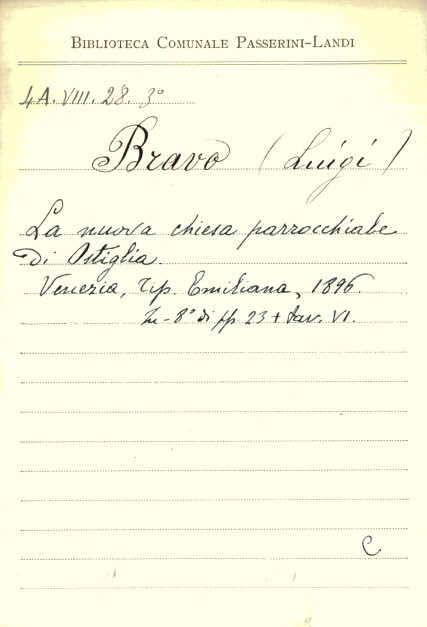 BIBLIOTECA COMUNALE PASSERINI-LANDI
4A.VIII.28.3°
Bravo (Luigi)
La nuova chiesa parrocchiale
di Ostiglia.
Venezia, Tip. Emiliana, 1896.
In-8° di pp. 23 + tav. VI.
C